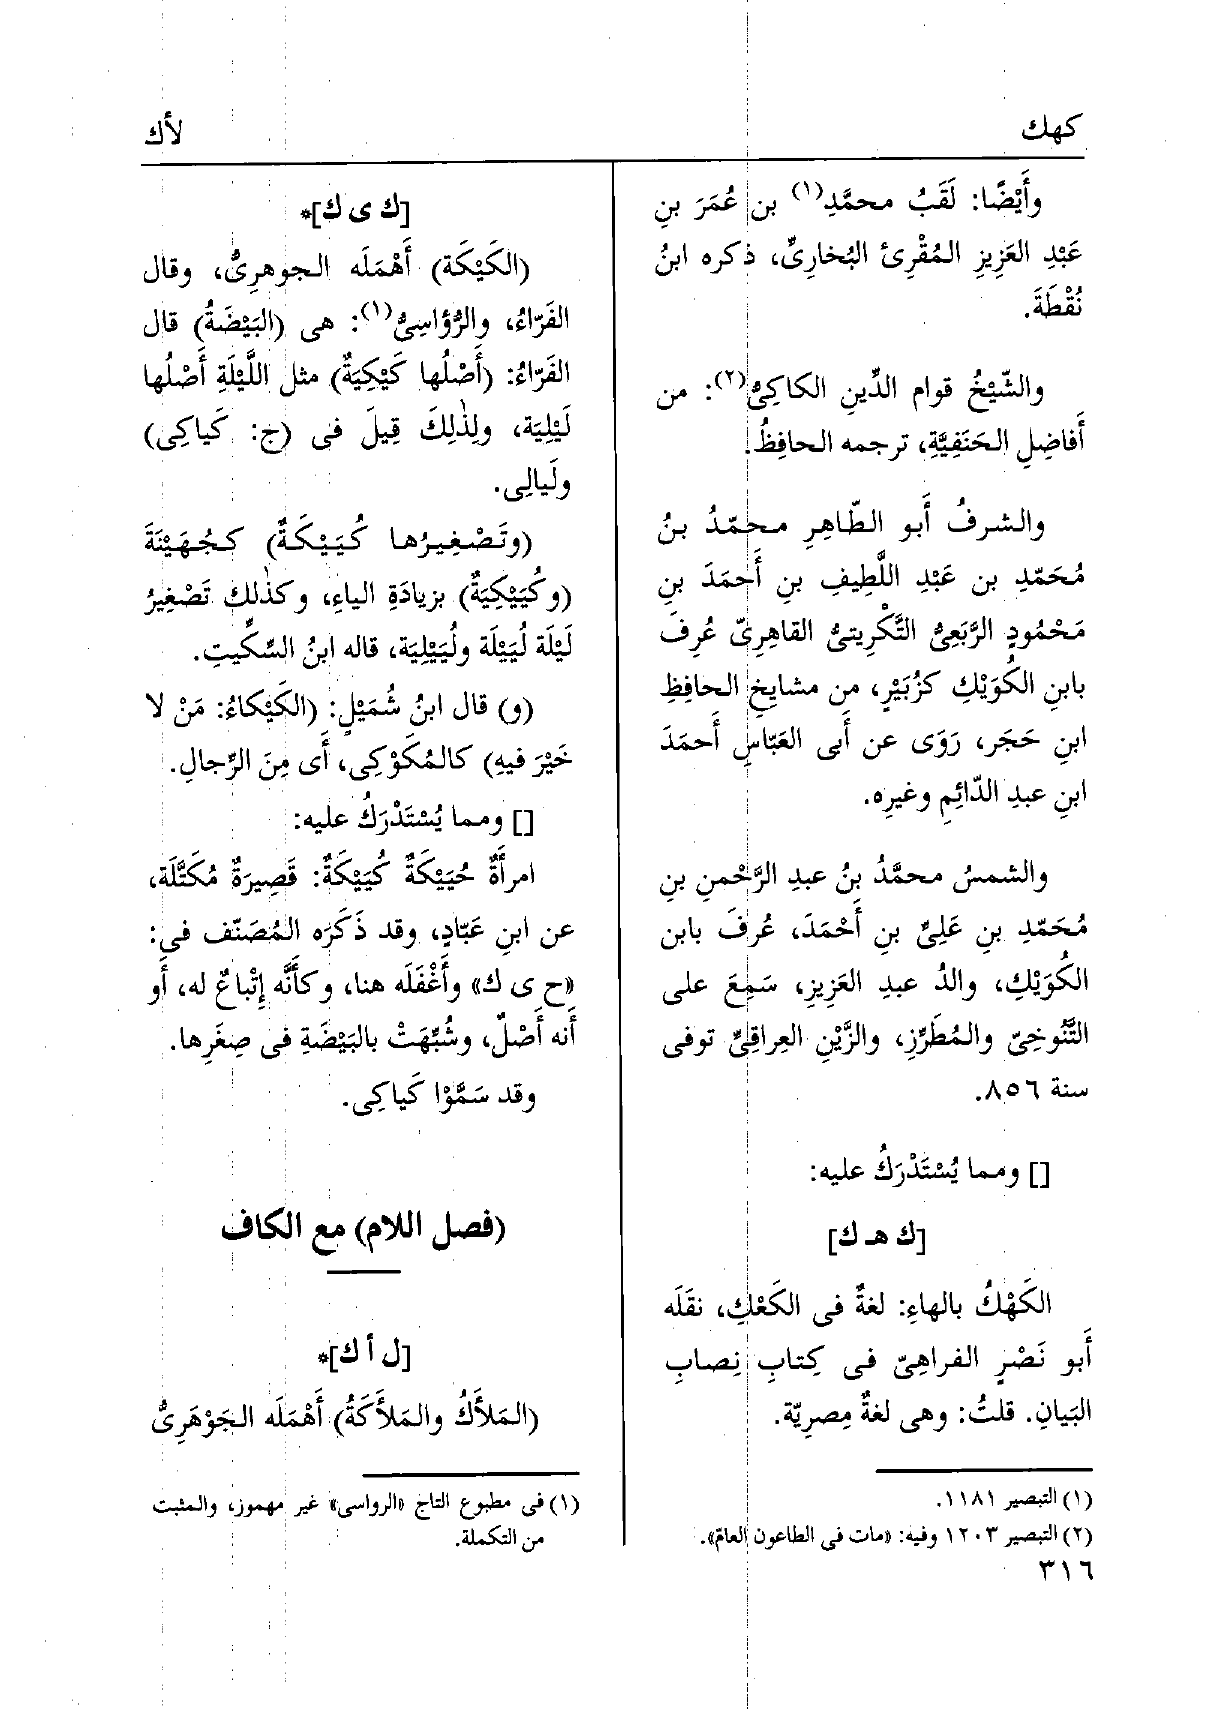 كهك
لأك
وأَيْضًا: لَقَبُ محمَّدِ(١) بن عُمَرَ بنِ
عَبْدِ العَزِيزِ المُقْرِئ البُخارِىِّ، ذكره ابنُ
نُقْطَةَ.
والشَّيْخُ قوام الدِّينِ الكاكِىُّ(٢): من
أَفاضِلِ الحَنَفِيَّةِ، ترجمه الحافِظُ.
والشرفُ أَبو الطّاهِرِ محمّدُ بنُ
مُحَمّدِ بن عَبْدِ اللَّطِيفِ بنِ أَحمَدَ بنِ
مَحْمُودٍ الرَّبَعِىُّ التَّكْرِيتىُّ القاهِرِىّ عُرِفَ
بابنِ الكُوَيْكِ كزُبَيْرٍ، من مشايخِ الحافِظِ
ابنِ حَجَر، رَوَى عن أَبى العَبّاسِ أَحمَدَ
ابنِ عبدِ الدّائِمِ وغيرِه.
والشمسُ محمَّدُ بنُ عبدِ الرَّحْمنِ بنِ
مُحَمّدِ بنِ عَلِىِّ بنِ أَحْمَدَ، عُرِفَ بابن
الكُوَيْكِ، والدُ عبدِ العَزِيزِ، سَمِعَ على
التَّنُوخِىّ والمُطَرِّزِ، والزَّيْنِ العِراقِىِّ توفى
سنة ٨٥٦.
[] ومما يُسْتَدْرَكُ عليه:
[ك هـ ك]
الكَهْكُ بالهاءِ: لغةٌ فى الكَعْكِ، نقَلَه
أَبو نَصْرٍ الفراهِىّ فى كِتابِ نِصابِ
البَيانِ. قلتُ: وهى لغةٌ مِصرِيّة.
(١) التبصير ١١٨١.
(٢) التبصير ١٢٠٣ وفيه: «مات فى الطاعون العام».
٣١٦
[ك ى ك]*
(الكَيْكَة) أَهْمَلَه الجوهرِىُّ، وقال
الفَرّاءُ، والرُّؤاسِىُّ(١): هى (البَيْضَةُ) قال
الفَرّاءُ: (أَصْلُها كَيْكِيَةٌ) مثل اللَّيْلَةِ أَصْلُها
لَيْلِيَة، ولِذٰلِكَ قِيلَ فى (ج: كَياكِى)
ولَيالِى.
(وتَصْغِيرُها كُيَيْكَةٌ) كجُهَيْنَةَ
(وكُيَيْكِيَةٌ) بزيادَةِ الياءِ، وكذٰلك تَصْغِيرُ
لَيْلَة لُيَيْلَة ولُيَيْلِيَة، قاله ابنُ السِّكِّيتِ.
(و) قال ابنُ شُمَيْلٍ: (الكَيْكاءُ: مَنْ لا
خَيْرَ فيهِ) كالمُكَوْكِى، أَى مِنَ الرِّجالِ.
[] ومما يُسْتَدْرَكُ عليه:
امرأَةٌ حُيَيْكَةٌ كُيَيْكَةٌ: قَصِيرَةٌ مُكَتَّلَة،
عن ابنِ عَبّادٍ، وقد ذَكَرَه المُصَنّف فى:
«ح ى ك» وأَغْفَلَه هنا، وكأَنَّه إِتْباعٌ له، أَو
أَنه أَصْلٌ، وشُبِّهَتْ بالبَيْضَةِ فى صِغَرِها.
وقد سَمَّوْا كَياكِى.
(فصل اللام) مع الكاف
[ل أ ك]*
(المَلأَكُ والمَلأَكَةُ) أَهْمَلَه الجَوْهَرِىُّ
(١) فى مطبوع التاج «الرواسى» غير مهموز، والمثبت
من التكملة.